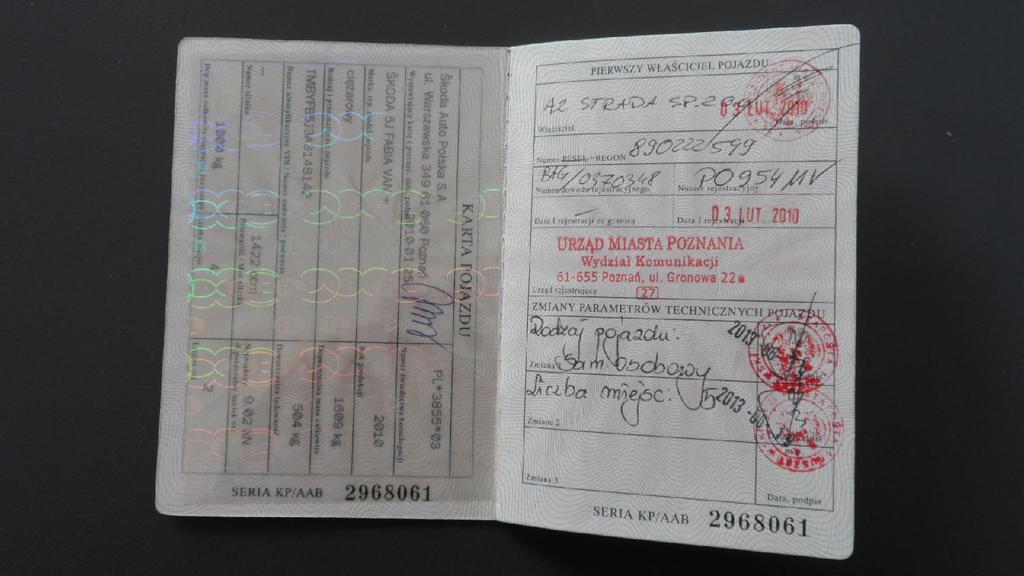 KARTA POJAZDU
Škoda Auto Polska S.A.
ul. Warszawska 349 61-060 Poznań
2010-01-25
Wystawiający kartę / pieczęć, data, podpis
PL*3855*03
Numer świadectwa homologacji
ŠKODA 5J FABIA VAN
Marka, typ, model pojazdu
2010
Rok produkcji
ciężarowy
Rodzaj i przeznaczenie pojazdu
1609 kg
Dopuszczalna masa całkowita
TMBYFB5J3A3148142
Numer identyfikacyjny VIN / Numer nadwozia / podwozia
504 kg
Dopuszczalna ładowność
Numer silnika
1422 ccm
9.02 kN
1000 kg
SERIA KP/AAB 2968061
PIERWSZY WŁAŚCICIEL POJAZDU
A2 STRADA SP. Z
03 LUT. 2010
Właściciel
Data, podpis
890222/599
Numer PESEL / REGON
BAG/0370348
PO954MV
Numer dowodu rejestracyjnego
Numer rejestracyjny
03. LUT 2010
Data I rejestracji za granicą
Data I rejestracji
URZĄD MIASTA POZNANIA
Wydział Komunikacji
61-655 Poznań, ul. Gronowa 22a
Urząd rejestrujący
27
ZMIANY PARAMETRÓW TECHNICZNYCH POJAZDU
Rodzaj pojazdu:
Sam. osobowy
Zmiana 1
Liczba miejsc: 5
Zmiana 2
Zmiana 3
Data, podpis
SERIA KP/AAB 2968061